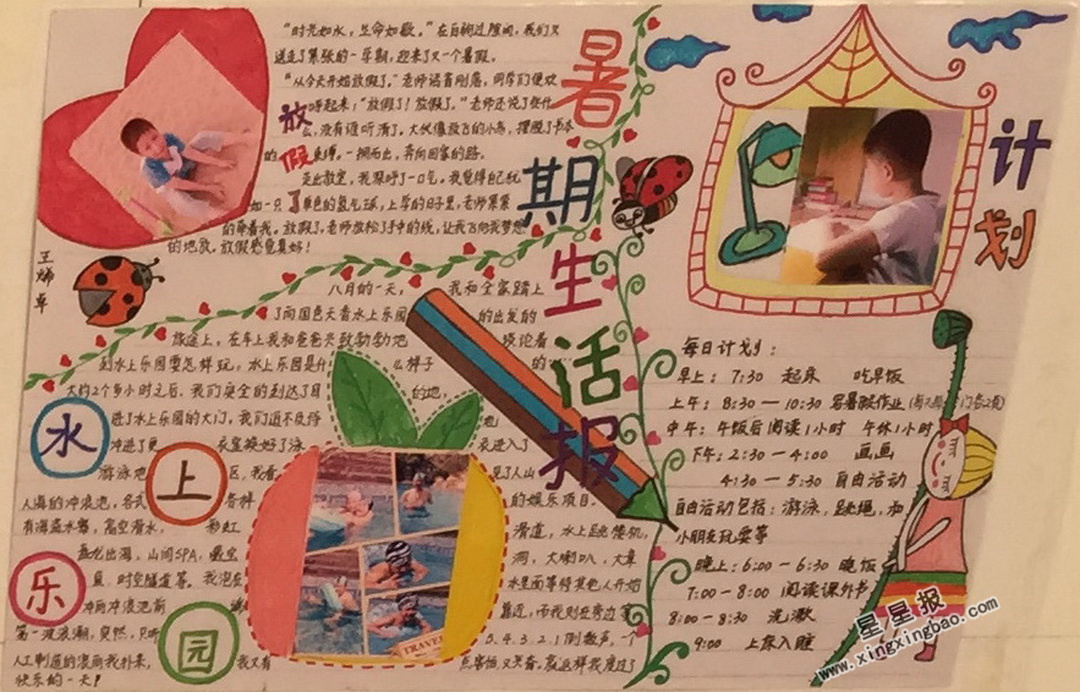 暑期生活报
放假了
"时光如水,生命如歌。"在白驹过隙间,我们又
送走了紧张的一学期,迎来了又一个暑假。
"从今天开始放假了。"老师话音刚落,同学们便欢
呼起来:"放假了!放假了。"老师还说了些什
么,没有谁听清了。大伙像放飞的小鸟,摆脱了书本
的束缚。一拥而出,奔向回家的路。
走出教室,我深呼了一口气。我觉得自己就
如一只 单色的氢气球,上学的日子里,老师紧紧
的牵着我。放假了,老师放松了手中的线,让我飞向我梦想
的地放。放假感觉真好!
王烯卓
水上乐园
八月的一天, 我和全家踏上
了向国色天香水上乐园 的出发的
旅途上,在车上我和爸爸兴致勃勃地 谈论着
到水上乐园要怎样玩,水上乐园是什 么样子 的……
大约2个多小时之后,我们安全的到达了目 的地,
进了水上乐园的大门,我们迫不及待 地
冲进了更 衣室换好了泳 衣进入了
游泳池 区,我看 见了人山
人海的冲浪池,各式 各样 的娱乐项目:
有海盗水寨,高空滑水, 彩虹 滑道,水上跳楼机,
出海,山间SPA, 洞,大喇叭,大章
时空隧道等。我泡在 水里面等待其他人开始
冲向冲浪池前 靠近,而我则在旁边等
第一波浪潮,突然,只听 5.4.3.2.1倒数声,一个
人工制造的浪向我扑来, 我又有 点害怕又兴奋。就这样我度过了
快乐的一天!
TRAVEL
计划
每日计划:
早上:7:30 起床 吃早饭
上午:8:30—10:30 写暑假作业
中午:午饭后阅读1小时 午休1小时
下午:2:30—4:00 画画
4:30—5:30 自由活动
自由活动包括:游泳,跳绳,和
小朋友玩耍等
晚上:6:00—6:30 晚饭
7:00—8:00 阅读课外书
8:00—8:30 洗漱
9:00 上床入睡
星星报
www.xingxingbao.com